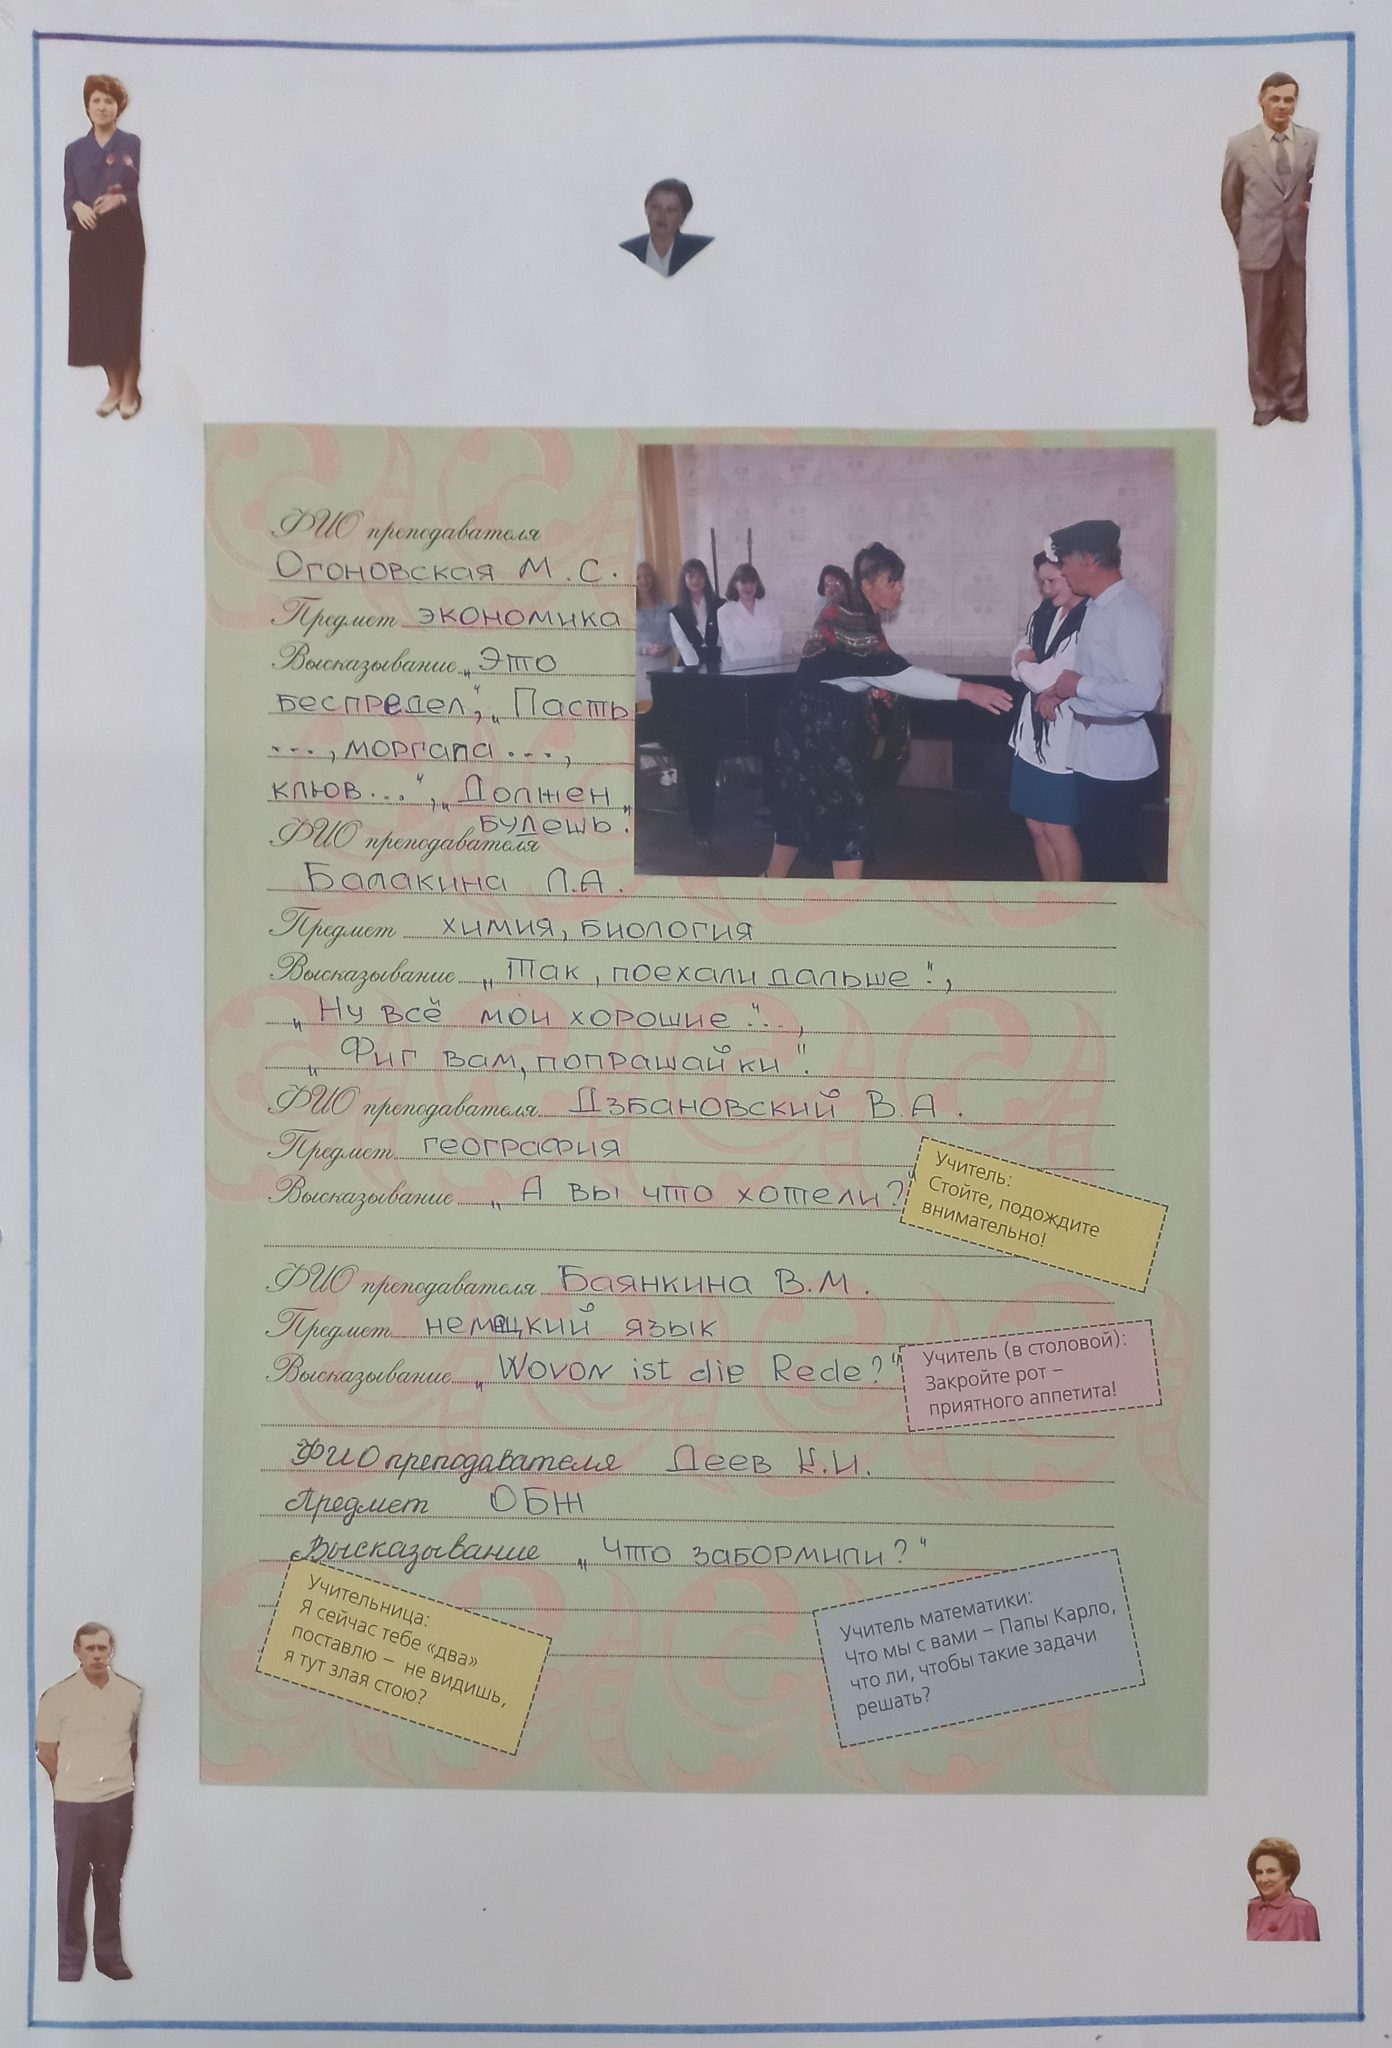 ФИО преподавателя
Огоновская М.С.
Предмет экономика
Высказывание „Это
беспредел“, „Пасть
..., моргала...,
клюв...“, „Должен
будешь“.
ФИО преподавателя
Балакина Л.А.
Предмет химия, биология
Высказывание „Так, поехали дальше!“,
„Ну всё мои хорошие...“,
„Фиг вам, попрашайки!“
ФИО преподавателя Дзбановский В.А.
Предмет география
Высказывание „А вы что хотели?“
Учитель:
Стойте, подождите
внимательно!
ФИО преподавателя Баянкина В.М.
Предмет немецкий язык
Высказывание „Wovon ist die Rede?“
Учитель (в столовой):
Закройте рот –
приятного аппетита!
ФИО преподавателя Деев К.И.
Предмет ОБЖ
Высказывание „Что забормили?“
Учительница:
Я сейчас тебе «два»
поставлю – не видишь,
я тут злая стою?
Учитель математики:
Что мы с вами – Папы Карло,
что ли, чтобы такие задачи
решать?